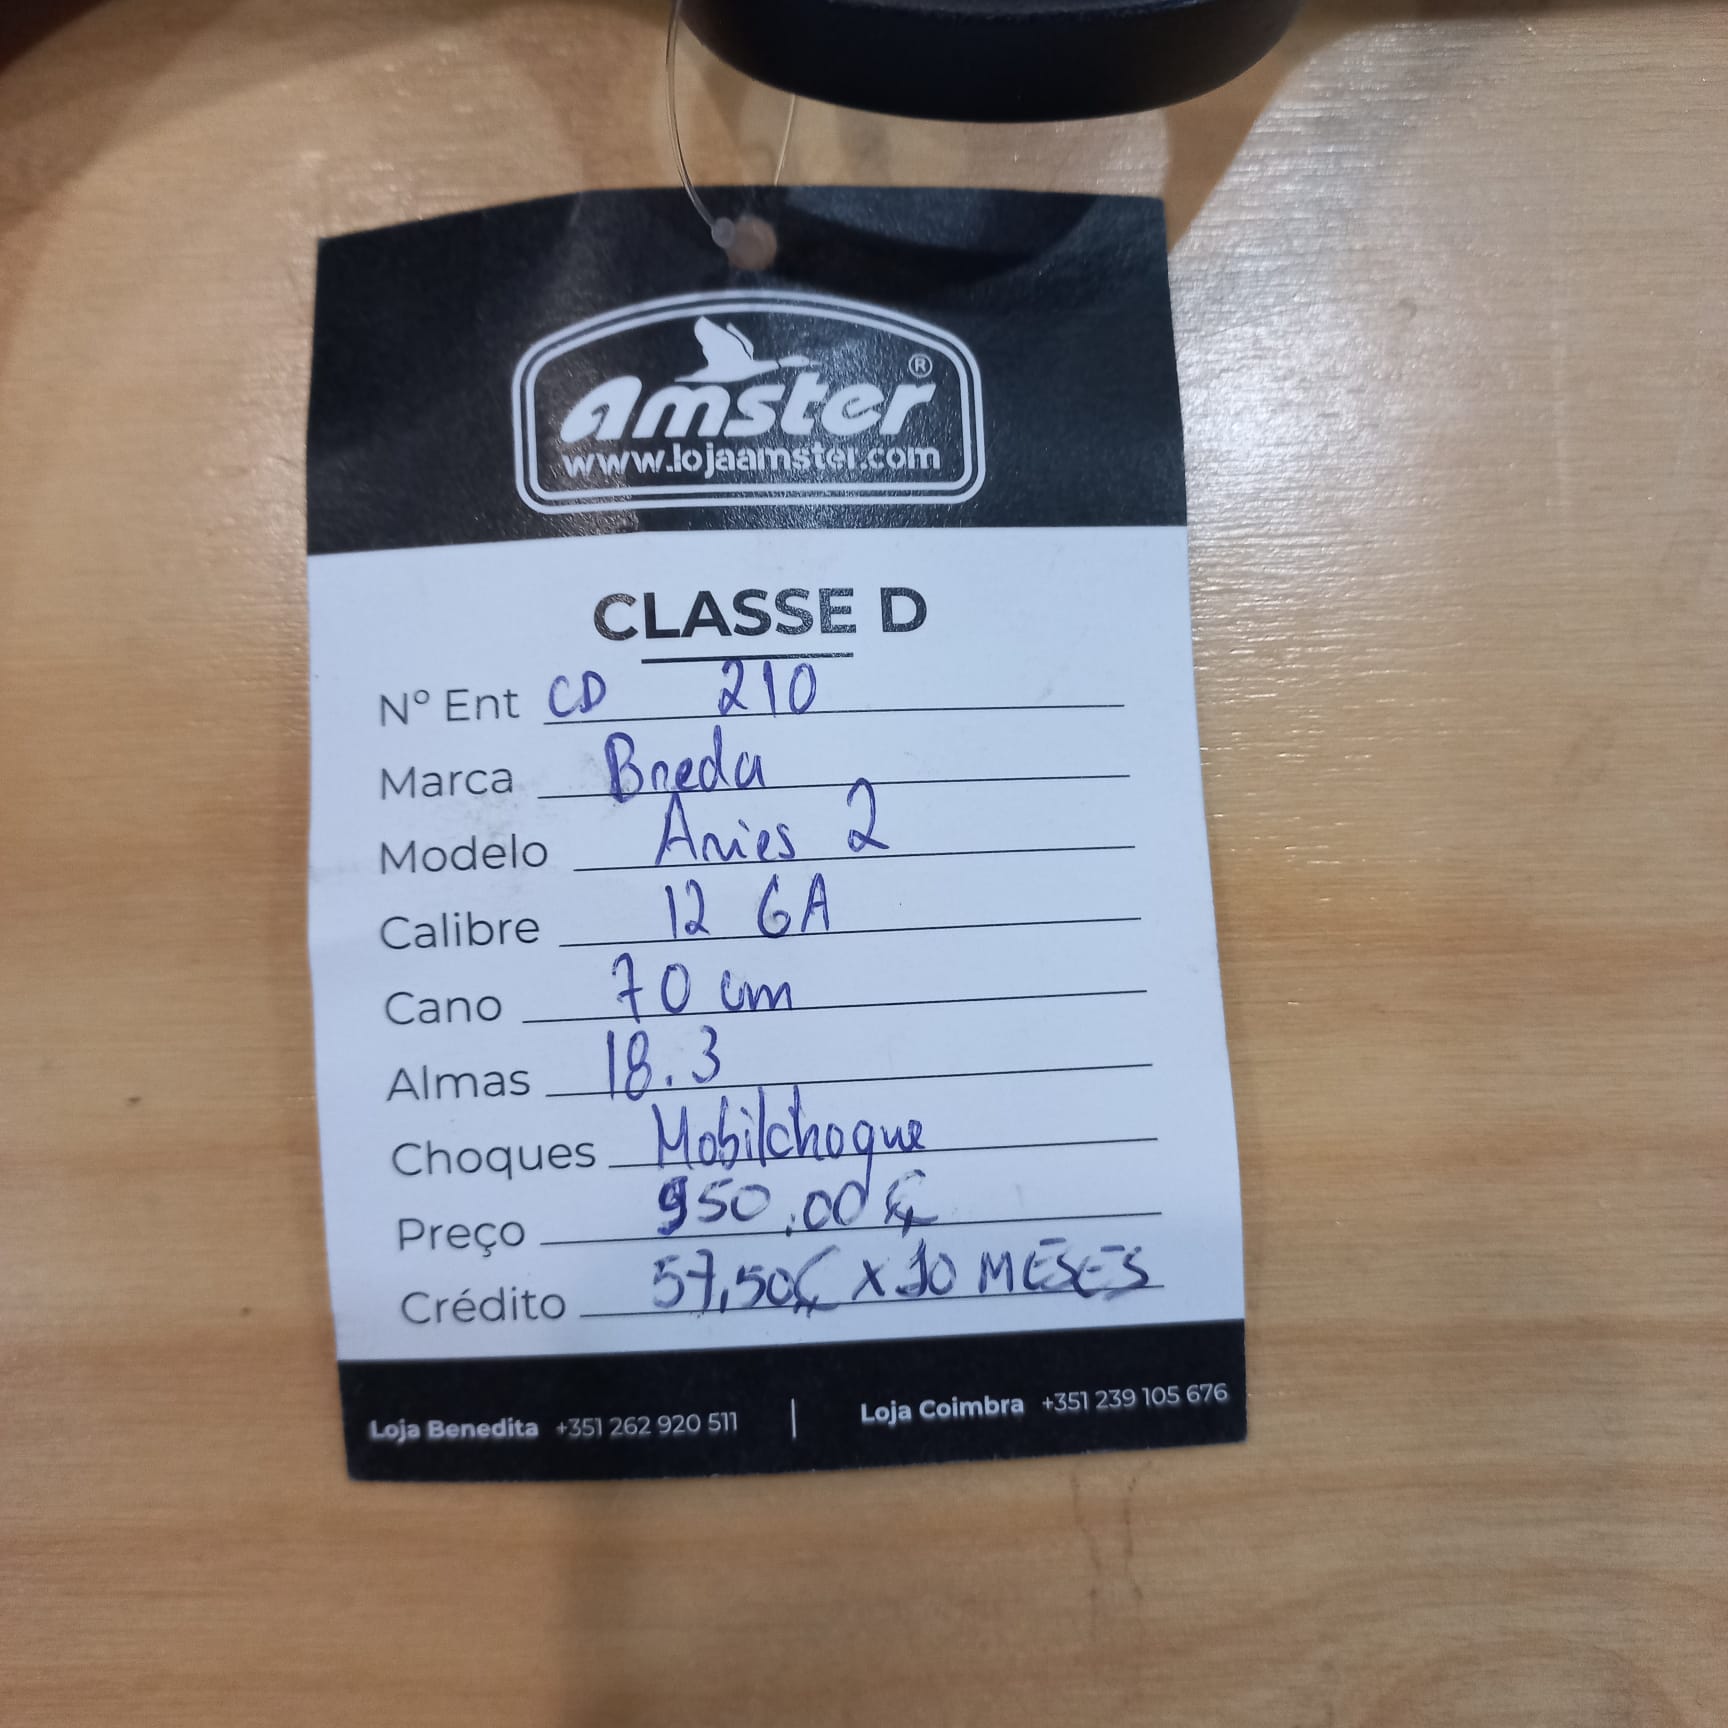 amster®
www.lojaamster.com
CLASSE D
Nº Ent CD 210
Marca Breda
Modelo Aries 2
Calibre 12 GA
Cano 70 cm
Almas 18.3
Choques Mobilchoque
Preço 950.00€
Crédito 57,50€ x 10 MESES
Loja Benedita +351 262 920 511 | Loja Coimbra +351 239 105 676